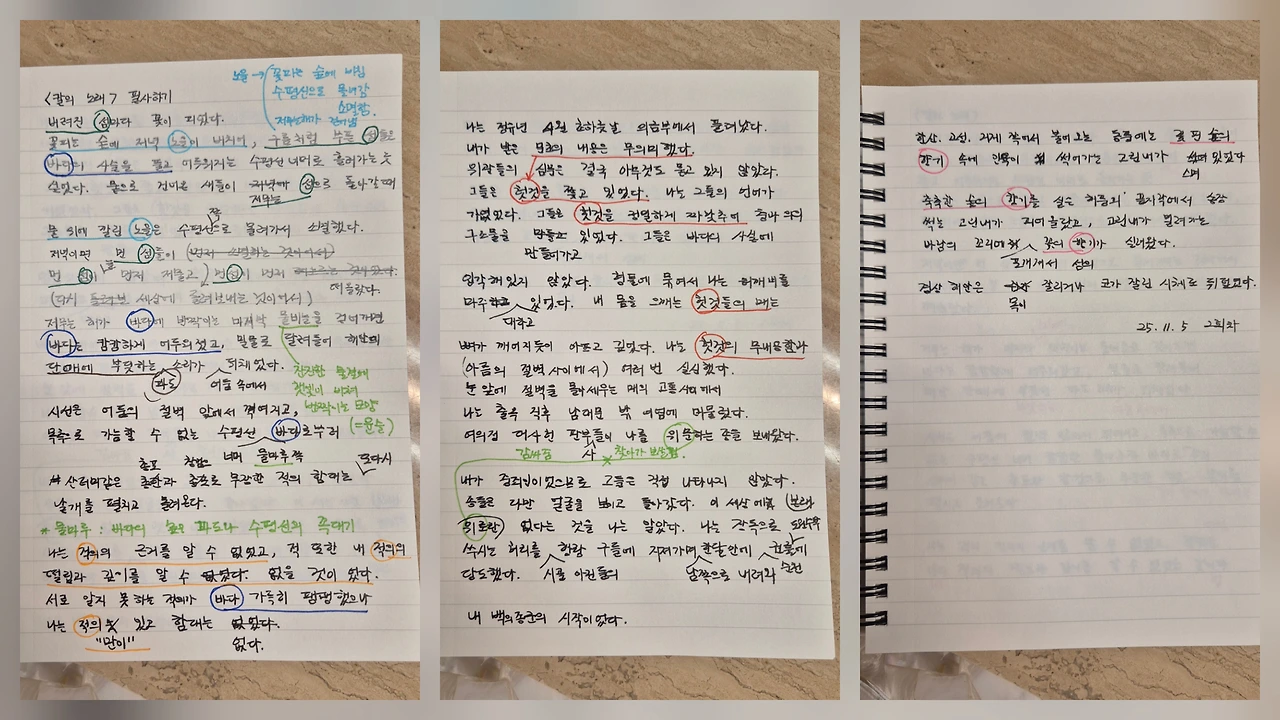 <칼의 노래> 필사하기
노을 → 꽃피는 숲에 비침
수평선으로 몰려감
소멸함.
저무는 해가
버려진 섬마다 꽃이 피었다.
꽃피는 숲에 저녁 노을이 비치어, 구름처럼 부푼 섬들은
바다의 사슬을 풀고 어두워지는 수평선 너머로 흘러가는 듯
싶었다. 뭍으로 건너온 새들이 저무는 섬으로 돌아갈 때
물 위에 깔린 노을은 수평선 쪽으로 몰려가서 소멸했다.
저녁이면 먼 섬들이
먼 섬이 먼저 저물고, 먼 섬이 먼저
떠올랐다.
저무는 해가 바다에 반짝이는 마지막 물비늘을 걷어가면
바다는 캄캄하게 어두워졌고, 밀물로 달려들어 해안의
단애에 부딪히는 소리가 뒤채었다.
파도 어둠 속에서
잔잔한 물결에
햇빛이 비쳐
반짝이는 모양
(=윤슬)
시선은 어둠의 절벽 앞에서 꺾여지고,
목측으로 가늠할 수 없는 수평선 바다로부터
너머 물마루 쪽
산더미같은 총포와 창검으로 무장한 적의 함대는 다시
날개를 펼치고 몰려온다.
* 물마루 : 바다의 높은 파도나 수평선의 꼭대기
나는 적의의 근거를 알 수 없었고, 적 또한 내 적의의
떨림과 깊이를 알 수 없을 것이었다.
서로 알지 못하는 적의가 바다 가득히 팽팽했으나
나는 적의 및 있고 함대는 없었다.
"만이" 없다.
나는 정유년 4월 초하룻날 의금부에서 풀려났다.
내가 받은 문초의 내용은 무의미했다.
위관들의 심문은 결국 아무것도 묻고 있지 않았다.
그들은 헛것을 쫓고 있었다. 나는 그들의 언어가
가엾었다. 그들은 헛것을 정밀하게 짜맞추어 충의 의
구조물을 만들고 있었다. 그들은 바다의 사실에
만들어가고
입각해 있지 않았다. 형틀에 묶여서 나는 허깨비를
마주하고 있었다. 내 몸을 으깨는 헛것들의 매는
대하고
뼈가 깨어지듯이 아프고 깊었다. 나는 헛것의 무내용함과
(아픔의 절벽 사이에서) 여러 번 실신했다.
눈 앞에 절벽을 몰아세우는 매의 고통 사이에서
나는 출옥 직후 남대문 밖 여염에 머물렀다.
여의정 대사헌 판부들이 나를 위문하는 종을 보내왔다.
사
감싸줌 찾아가 보살핌
내가 중죄인이었으므로 그들은 직접 나타나지 않았다.
종들은 다만 얼굴을 보이고 돌아갔다. 이 세상에
위로란 없다는 것을 나는 알았다. 나는 장독으로
쑤시는 허리를 행랑 구들에 지져가며 한달만에 권률에
당도했다. 시골 아전들의 남쪽으로 내려와 순천
내 백의종군의 시작이었다.
함산, 고성, 거제 쪽에서 불어오는 동풍에는 꽃 핀 숲의
향기 속에 인육이 썩어가는 고린내가 스며 있었다
축축한 숲의 향기를 실은 해풍의 끝자락에서 송장
썩는 고린내가 피어올랐고, 고린내가 밀려가는
바람의 꼬리에 꽃의 향기가 실려왔다.
포개져서 섬의
경상 해안은 목이 잘리거나 코가 잘린 시체로 뒤덮였다.
25. 11. 5 2회차